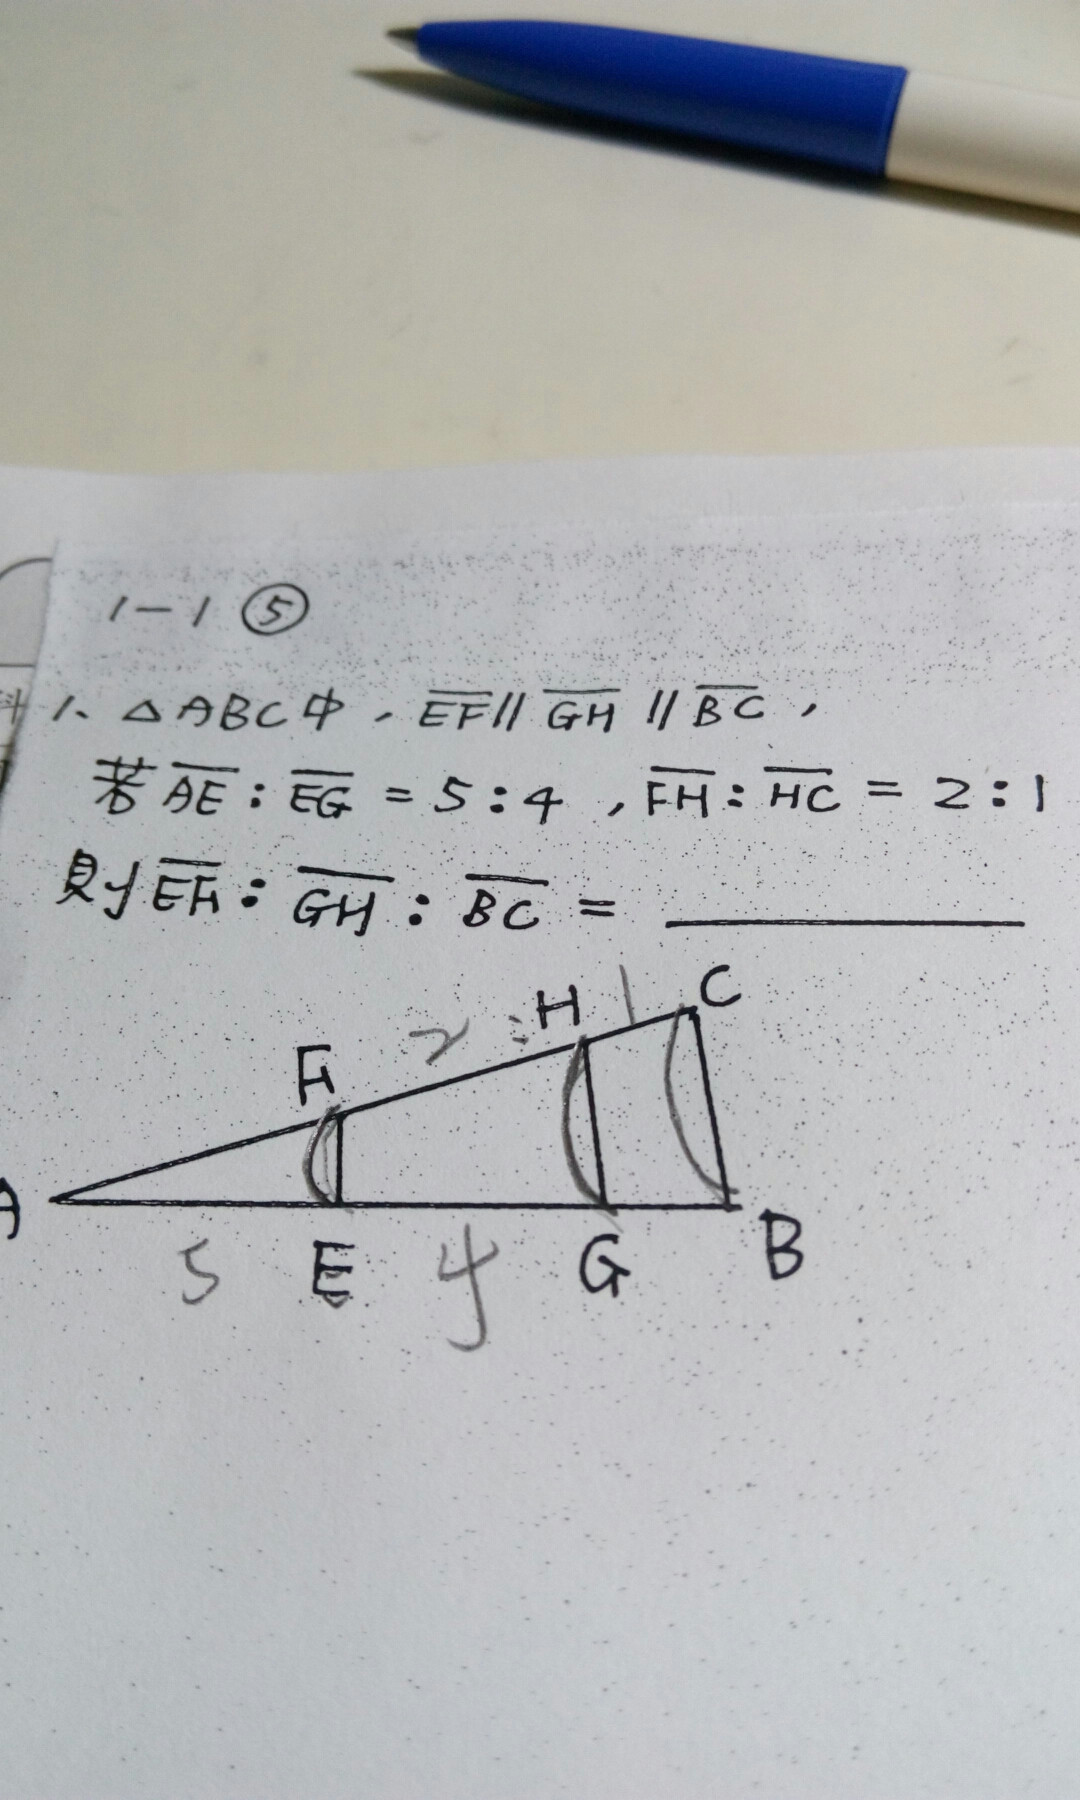 1-1 ⑤
1、△ABC中，EF // GH // BC，
若AE:EG=5:4，FH:HC=2:1
則EF:GH:BC=
C
1
H
2 :
F
A
5 E 4 G B